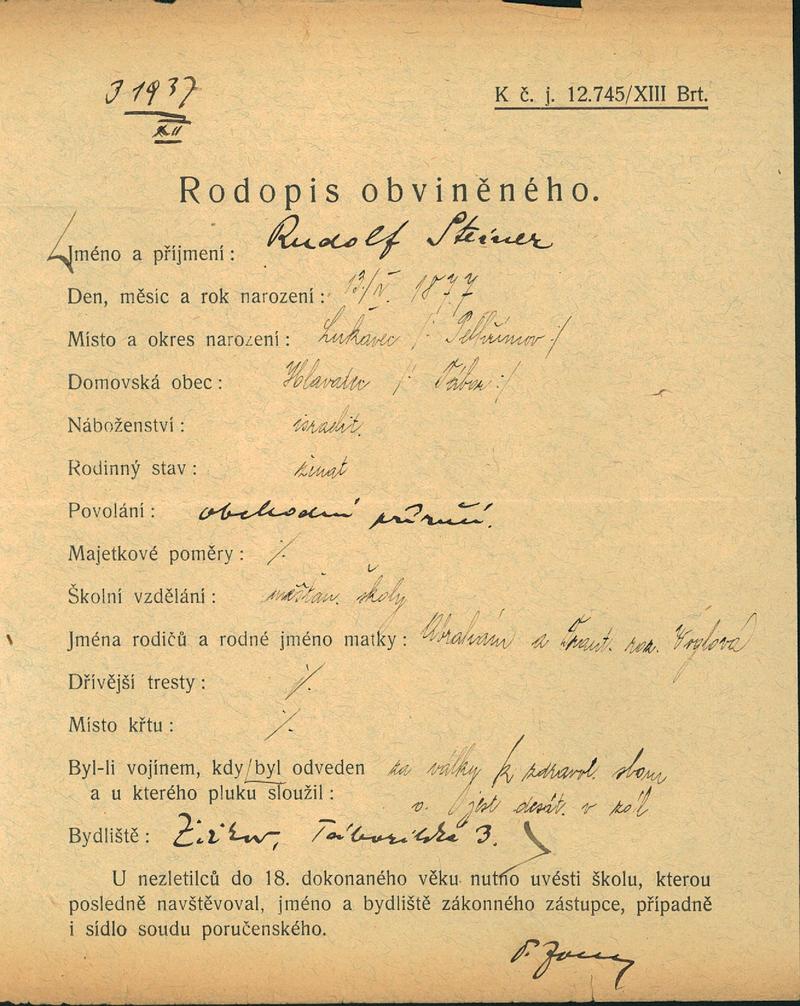 3 1937
XII
K č. j. 12.745/XIII Brt.
Rodopis obviněného.
Jméno a příjmení: Rudolf Steiner
Den, měsíc a rok narození: 13/V. 1877
Místo a okres narození: Lukavec /: Pelhřimov :/
Domovská obec: Hlavatec /: Tábor :/
Náboženství: israelit.
Rodinný stav: ženat
Povolání: obchodní příručí.
Majetkové poměry: ·/.
Školní vzdělání: měšťan. školy
Jména rodičů a rodné jméno matky: Abrahám a Frant. roz.
Dřívější tresty: ·/.
Místo křtu: ·/.
Byl-li vojínem, kdy byl odveden za války k zdravot.
a u kterého pluku sloužil: jest desát. v zál
Bydliště: Žižkov, Táboritská 3.
U nezletilců do 18. dokonaného věku nutno uvésti školu, kterou
posledně navštěvoval, jméno a bydliště zákonného zástupce, případně
i sídlo soudu poručenského.